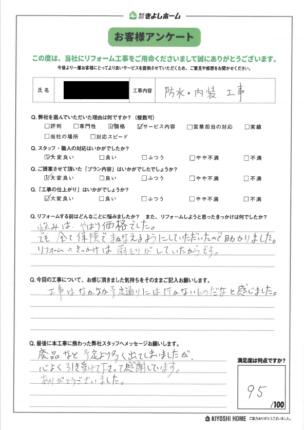 株式会社 きよしホーム
お客様アンケート
この度は、当社にリフォーム工事をご用命くださいまして誠にありがとうございます。
今後より一層お客様にとってより良いサービスを提供させていただくため、ご意見や感想をお聞かせください。
氏名 工事内容 防水・内装 工事
Q. 弊社を選んでいただいた理由は何ですか？（複数可）
□評判 □専門性 ☑価格 ☑サービス内容 □営業担当の対応 □実績
□当社の場所 □対応スピード
Q. スタッフ・職人の対応はいかがでしたか？
☑大変良い □良い □ふつう □やや不満 □不満
Q. ご提案させて頂いた「プラン内容」はいかがでしたでしょうか？
☑大変良い □良い □ふつう □やや不満 □不満
Q. 「工事の仕上がり」はいかがでしょうか？
☑大変良い □良い □ふつう □やや不満 □不満
Q. リフォームする前はどんなことに悩みましたか？ また、リフォームしようと思ったきっかけは何でしたか？
悩みは、やはり価格でした。
でも 全て保険で 賄えるようにしていただいたので助かりました。
リフォームのきっかけは 雨もりがしていたからです。
Q. 今回の工事について、お感じ頂きました気持ちをそのままご記入お願いします。
工事は なかなか予定通りには 行かないものだなと感じました。
Q. 最後に本工事に携わった弊社スタッフへメッセージお願いします。
廃品など 予定より多く出てしまいましたが、
心よく引き受けて下さって感謝しています。
ありがとうございました。
満足度は何点ですか？
95
/100
KIYOSHI HOME ご協力ありがとうございました。